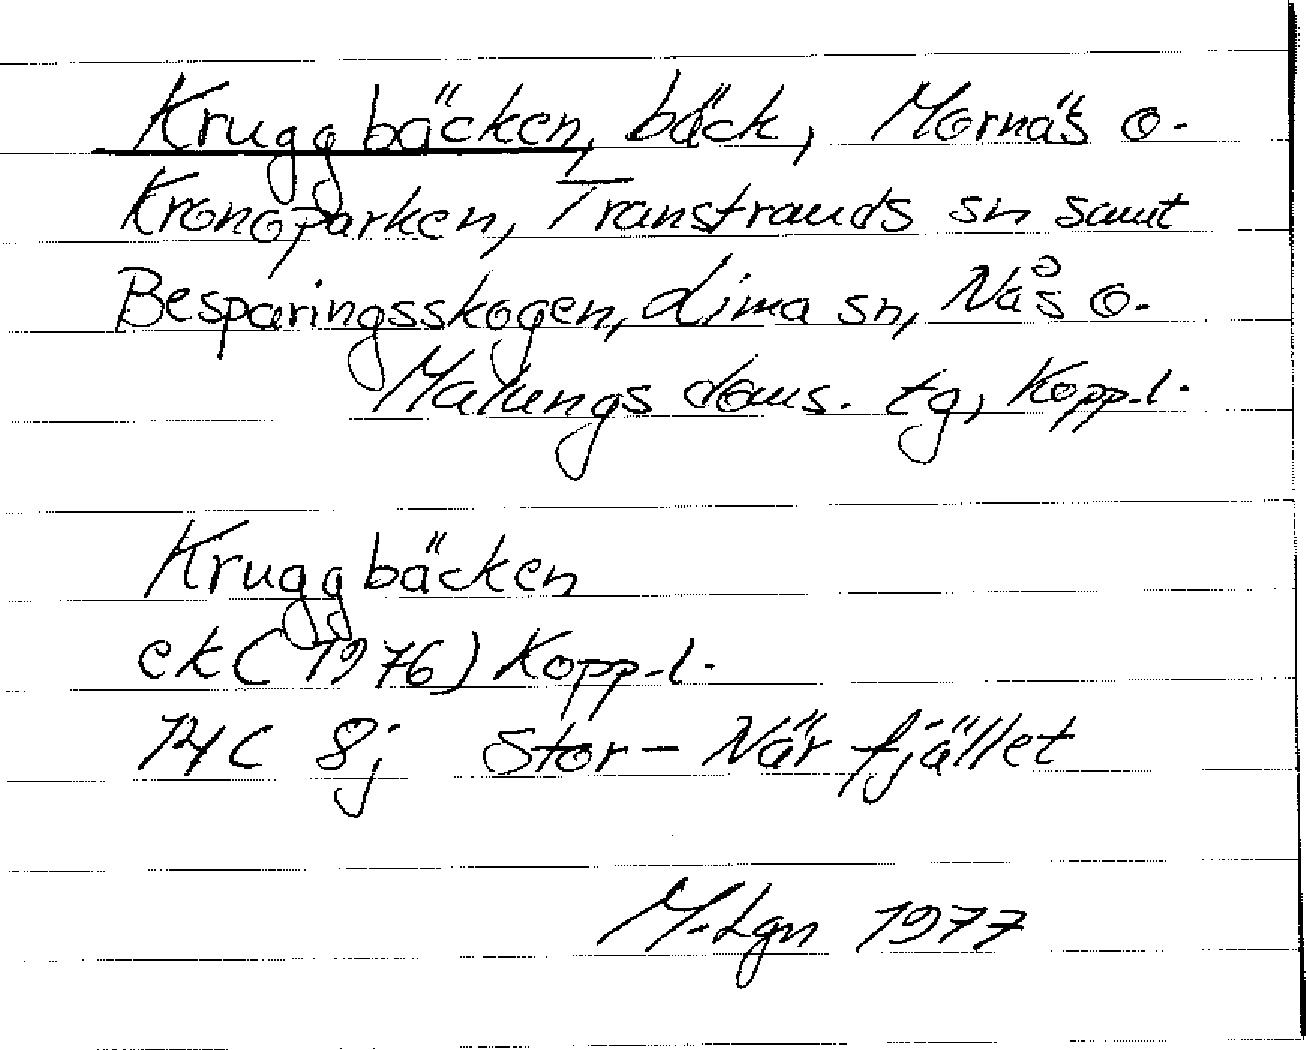 Kruggbäcken, bäck, Mornäs o.
Kronoparken, Transtrands sn samt
Besparingsskogen, Lima sn, Nås o.
Malungs doms. tg, Kopp.l.
Kruggbäcken
ek (1976) Kopp.l.
14C 8j Stor-Närfjället
M.Lgn 1977